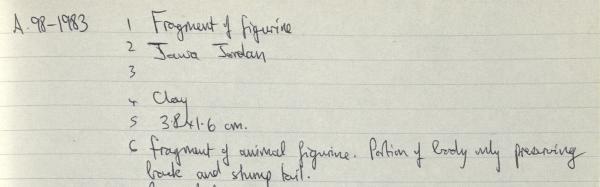 A.98-1983 1 Fragment of figurine
2 Jawa Jordan
3
4 Clay
5 3.8x1.6 cm.
6 fragment of animal figurine. Portion of body only preserving
back and stump tail.